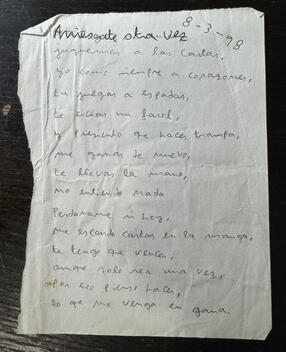 Arriesgate otra vez
8-3-98
juguemos a las cartas,
yo como siempre a corazones,
tu juegas a espadas,
te echas un farol,
y presiento que haces trampa,
me ganas de nuevo,
te llevas la mano,
no entiendo nada
Perdoname si hoy,
me escondo cartas en la manga,
te tengo que vencer,
aunque solo sea una vez,
por eso pienso hacer,
lo que me venga en gana.